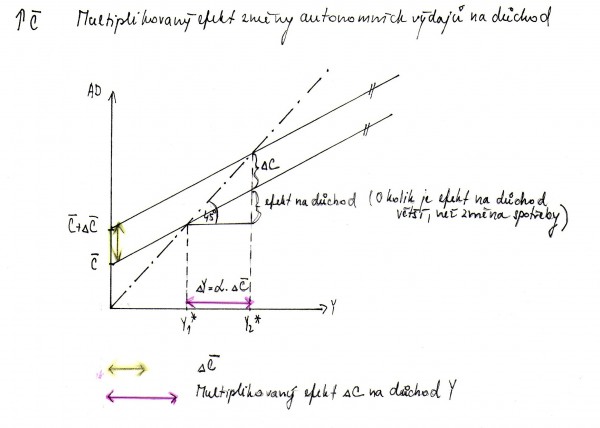 ↑C̅ Multiplikovaný efekt změny autonomních výdajů na důchod
AD
ΔC
efekt na důchod (O kolik je efekt na důchod
větší, než změna spotřeby)
45°
C̅+ΔC̅
C̅
ΔY=α.ΔC̅
Y
Y₁* Y₂*
ΔC̅
Multiplikovaný efekt ΔC na důchod Y